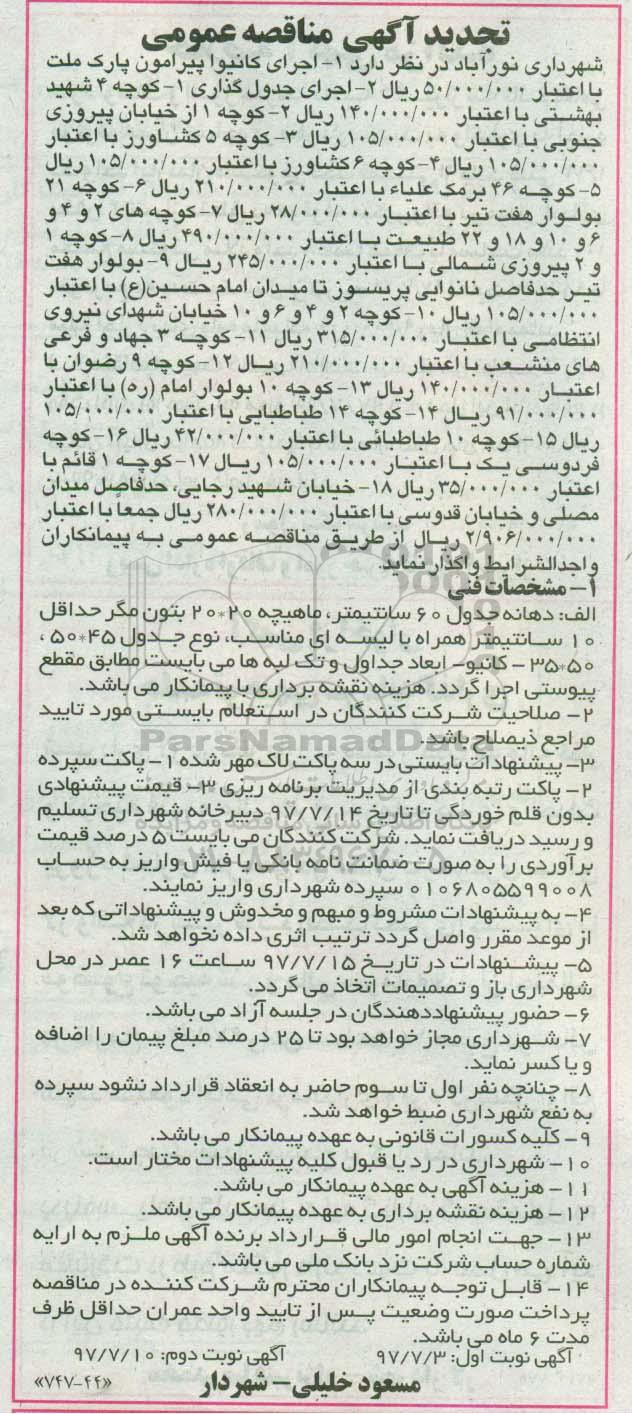 تجدید آگهی مناقصه عمومی
شهرداری نورآباد در نظر دارد ۱- اجرای کانیوا پیرامون پارک ملت
با اعتبار ۵۰/۰۰۰/۰۰۰ ریال ۲- اجرای جدول گذاری ۱- کوچه ۴ شهید
بهشتی با اعتبار ۱۴۰/۰۰۰/۰۰۰ ریال ۲- کوچه ۱ از خیابان پیروزی
جنوبی با اعتبار ۱۰۵/۰۰۰/۰۰۰ ریال ۳- کوچه ۵ کشاورز با اعتبار
۱۰۵/۰۰۰/۰۰۰ ریال ۴- کوچه ۶ کشاورز با اعتبار ۱۰۵/۰۰۰/۰۰۰ ریال
۵- کوچه ۴۶ برمک علیاء با اعتبار ۲۱۰/۰۰۰/۰۰۰ ریال ۶- کوچه ۲۱
بولوار هفت تیر با اعتبار ۲۸/۰۰۰/۰۰۰ ریال ۷- کوچه های ۲ و ۴ و
۶ و ۱۰ و ۱۸ و ۲۲ طبیعت با اعتبار ۴۹۰/۰۰۰/۰۰۰ ریال ۸- کوچه ۱
و ۲ پیروزی شمالی با اعتبار ۲۴۵/۰۰۰/۰۰۰ ریال ۹- بولوار هفت
تیر حدفاصل نانوایی پریسوز تا میدان امام حسین(ع) با اعتبار
۱۰۵/۰۰۰/۰۰۰ ریال ۱۰- کوچه ۲ و ۴ و ۶ و ۱۰ خیابان شهدای نیروی
انتظامی با اعتبار ۳۱۵/۰۰۰/۰۰۰ ریال ۱۱- کوچه ۳ جهاد و فرعی
های منشعب با اعتبار ۲۱۰/۰۰۰/۰۰۰ ریال ۱۲- کوچه ۹ رضوان با
اعتبار ۱۴۰/۰۰۰/۰۰۰ ریال ۱۳- کوچه ۱۰ بولوار امام (ره) با اعتبار
۹۱/۰۰۰/۰۰۰ ریال ۱۴- کوچه ۱۴ طباطبایی با اعتبار ۱۰۵/۰۰۰/۰۰۰
ریال ۱۵- کوچه ۱۰ طباطبائی با اعتبار ۴۲/۰۰۰/۰۰۰ ریال ۱۶- کوچه
فردوسی یک با اعتبار ۱۰۵/۰۰۰/۰۰۰ ریال ۱۷- کوچه ۱ قائم با
اعتبار ۳۵/۰۰۰/۰۰۰ ریال ۱۸- خیابان شهید رجایی، حدفاصل میدان
مصلی و خیابان قدوسی با اعتبار ۲۸۰/۰۰۰/۰۰۰ ریال جمعا با اعتبار
۲/۹۰۶/۰۰۰/۰۰۰ ریال از طریق مناقصه عمومی به پیمانکاران
واجدالشرایط واگذار نماید.
۱- مشخصات فنی
الف: دهانه جدول ۶۰ سانتیمتر، ماهیچه ۲۰*۲۰ بتون مگر حداقل
۱۰ سانتیمتر همراه با لیسه ای مناسب، نوع جدول ۴۵*۵۰ ،
۵۰*۳۵ - کانیو- ابعاد جداول و تک لبه ها می بایست مطابق مقطع
پیوستی اجرا گردد. هزینه نقشه برداری با پیمانکار می باشد.
۲- صلاحیت شرکت کنندگان در استعلام بایستی مورد تایید
مراجع ذیصلاح باشد.
ParsNamadData
۳- پیشنهادات بایستی در سه پاکت لاک مهر شده ۱- پاکت سپرده
۲- پاکت رتبه بندی از مدیریت برنامه ریزی ۳- قیمت پیشنهادی
بدون قلم خوردگی تا تاریخ ۹۷/۷/۱۴ دبیرخانه شهرداری تسلیم
و رسید دریافت نماید. شرکت کنندگان می بایست ۵ درصد قیمت
برآوردی را به صورت ضمانت نامه بانکی یا فیش واریز به حساب
۰۱۰۶۸۰۵۵۹۹۰۰۸ سپرده شهرداری واریز نمایند.
۴- به پیشنهادات مشروط و مبهم و مخدوش و پیشنهاداتی که بعد
از موعد مقرر واصل گردد ترتیب اثری داده نخواهد شد.
۵- پیشنهادات در تاریخ ۹۷/۷/۱۵ ساعت ۱۶ عصر در محل
شهرداری باز و تصمیمات اتخاذ می گردد.
۶- حضور پیشنهاددهندگان در جلسه آزاد می باشد.
۷- شهرداری مجاز خواهد بود تا ۲۵ درصد مبلغ پیمان را اضافه
و یا کسر نماید.
۸- چنانچه نفر اول تا سوم حاضر به انعقاد قرارداد نشود سپرده
به نفع شهرداری ضبط خواهد شد.
۹- کلیه کسورات قانونی به عهده پیمانکار می باشد.
۱۰- شهرداری در رد یا قبول کلیه پیشنهادات مختار است.
۱۱- هزینه آگهی به عهده پیمانکار می باشد.
۱۲- هزینه نقشه برداری به عهده پیمانکار می باشد.
۱۳- جهت انجام امور مالی قرارداد برنده آگهی ملزم به ارایه
شماره حساب شرکت نزد بانک ملی می باشد.
۱۴- قابل توجه پیمانکاران محترم شرکت کننده در مناقصه
پرداخت صورت وضعیت پس از تایید واحد عمران حداقل ظرف
مدت ۶ ماه می باشد.
آگهی نوبت اول: ۹۷/۷/۳ آگهی نوبت دوم: ۹۷/۷/۱۰
مسعود خلیلی- شهردار «۷۴۷-۴۴»